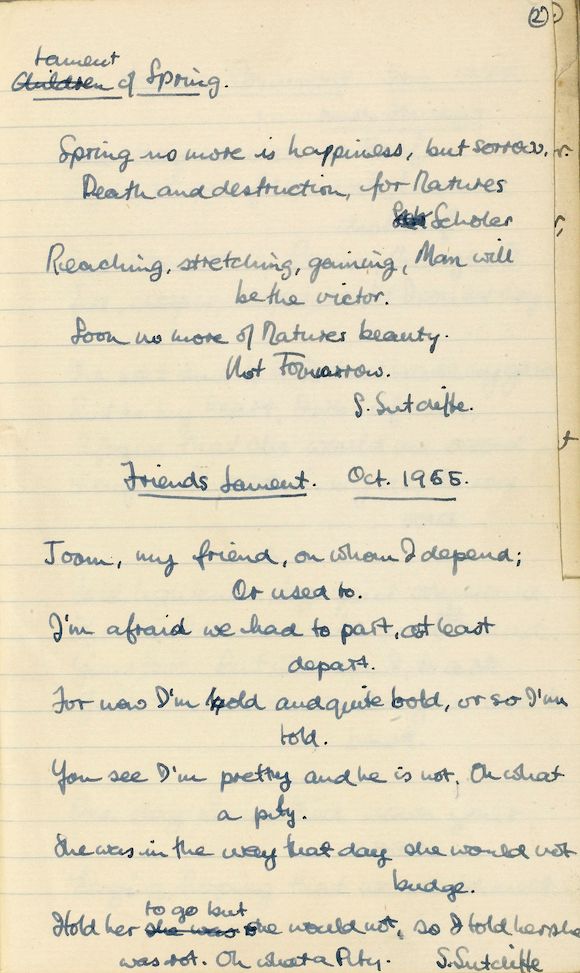 (2)
Lament
Children of Spring.
Spring no more is happiness, but sorrow.
Death and destruction, for Natures
Scholer
Reaching, stretching, gaining, Man will
be the victor.
Soon no more of Natures beauty.
Not Tomorrow.
S. Sutcliffe.
Friends Lament. Oct. 1955.
Toom, my friend, on whom I depend;
Or used to.
I'm afraid we had to part, at least
depart.
For now I'm old and quite bold, or so I'm
told.
You see I'm pretty and he is not. Oh what
a pity.
She was in the way that day she would not
budge.
to go but
I told her she was she would not, so I told her she
was rot. Oh what a Pity. S. Sutcliffe